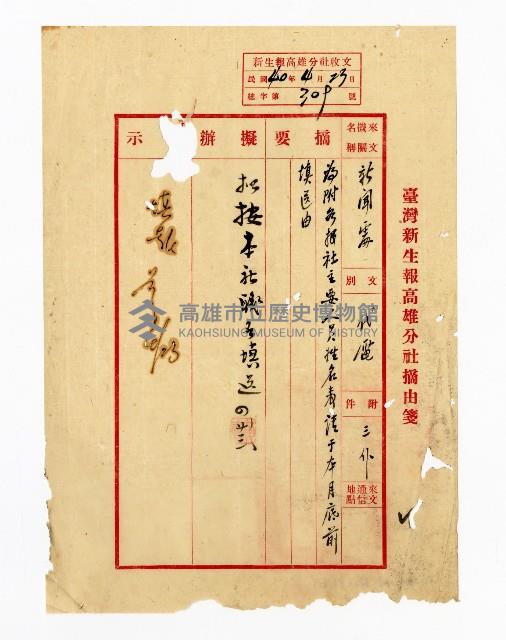 新生報高雄分社收文
民國40年4月23日
總字第309號
臺灣新生報高雄分社摘由箋
來文機關名稱
新聞處
文別
代電
附件
三仆
來文通信地點
摘要
為附各報社主要人員姓名表請于本月底前
填送由
擬辦
批示
拟按本社職員填送
高雄市立歷史博物館
KAOHSIUNG MUSEUM OF HISTORY